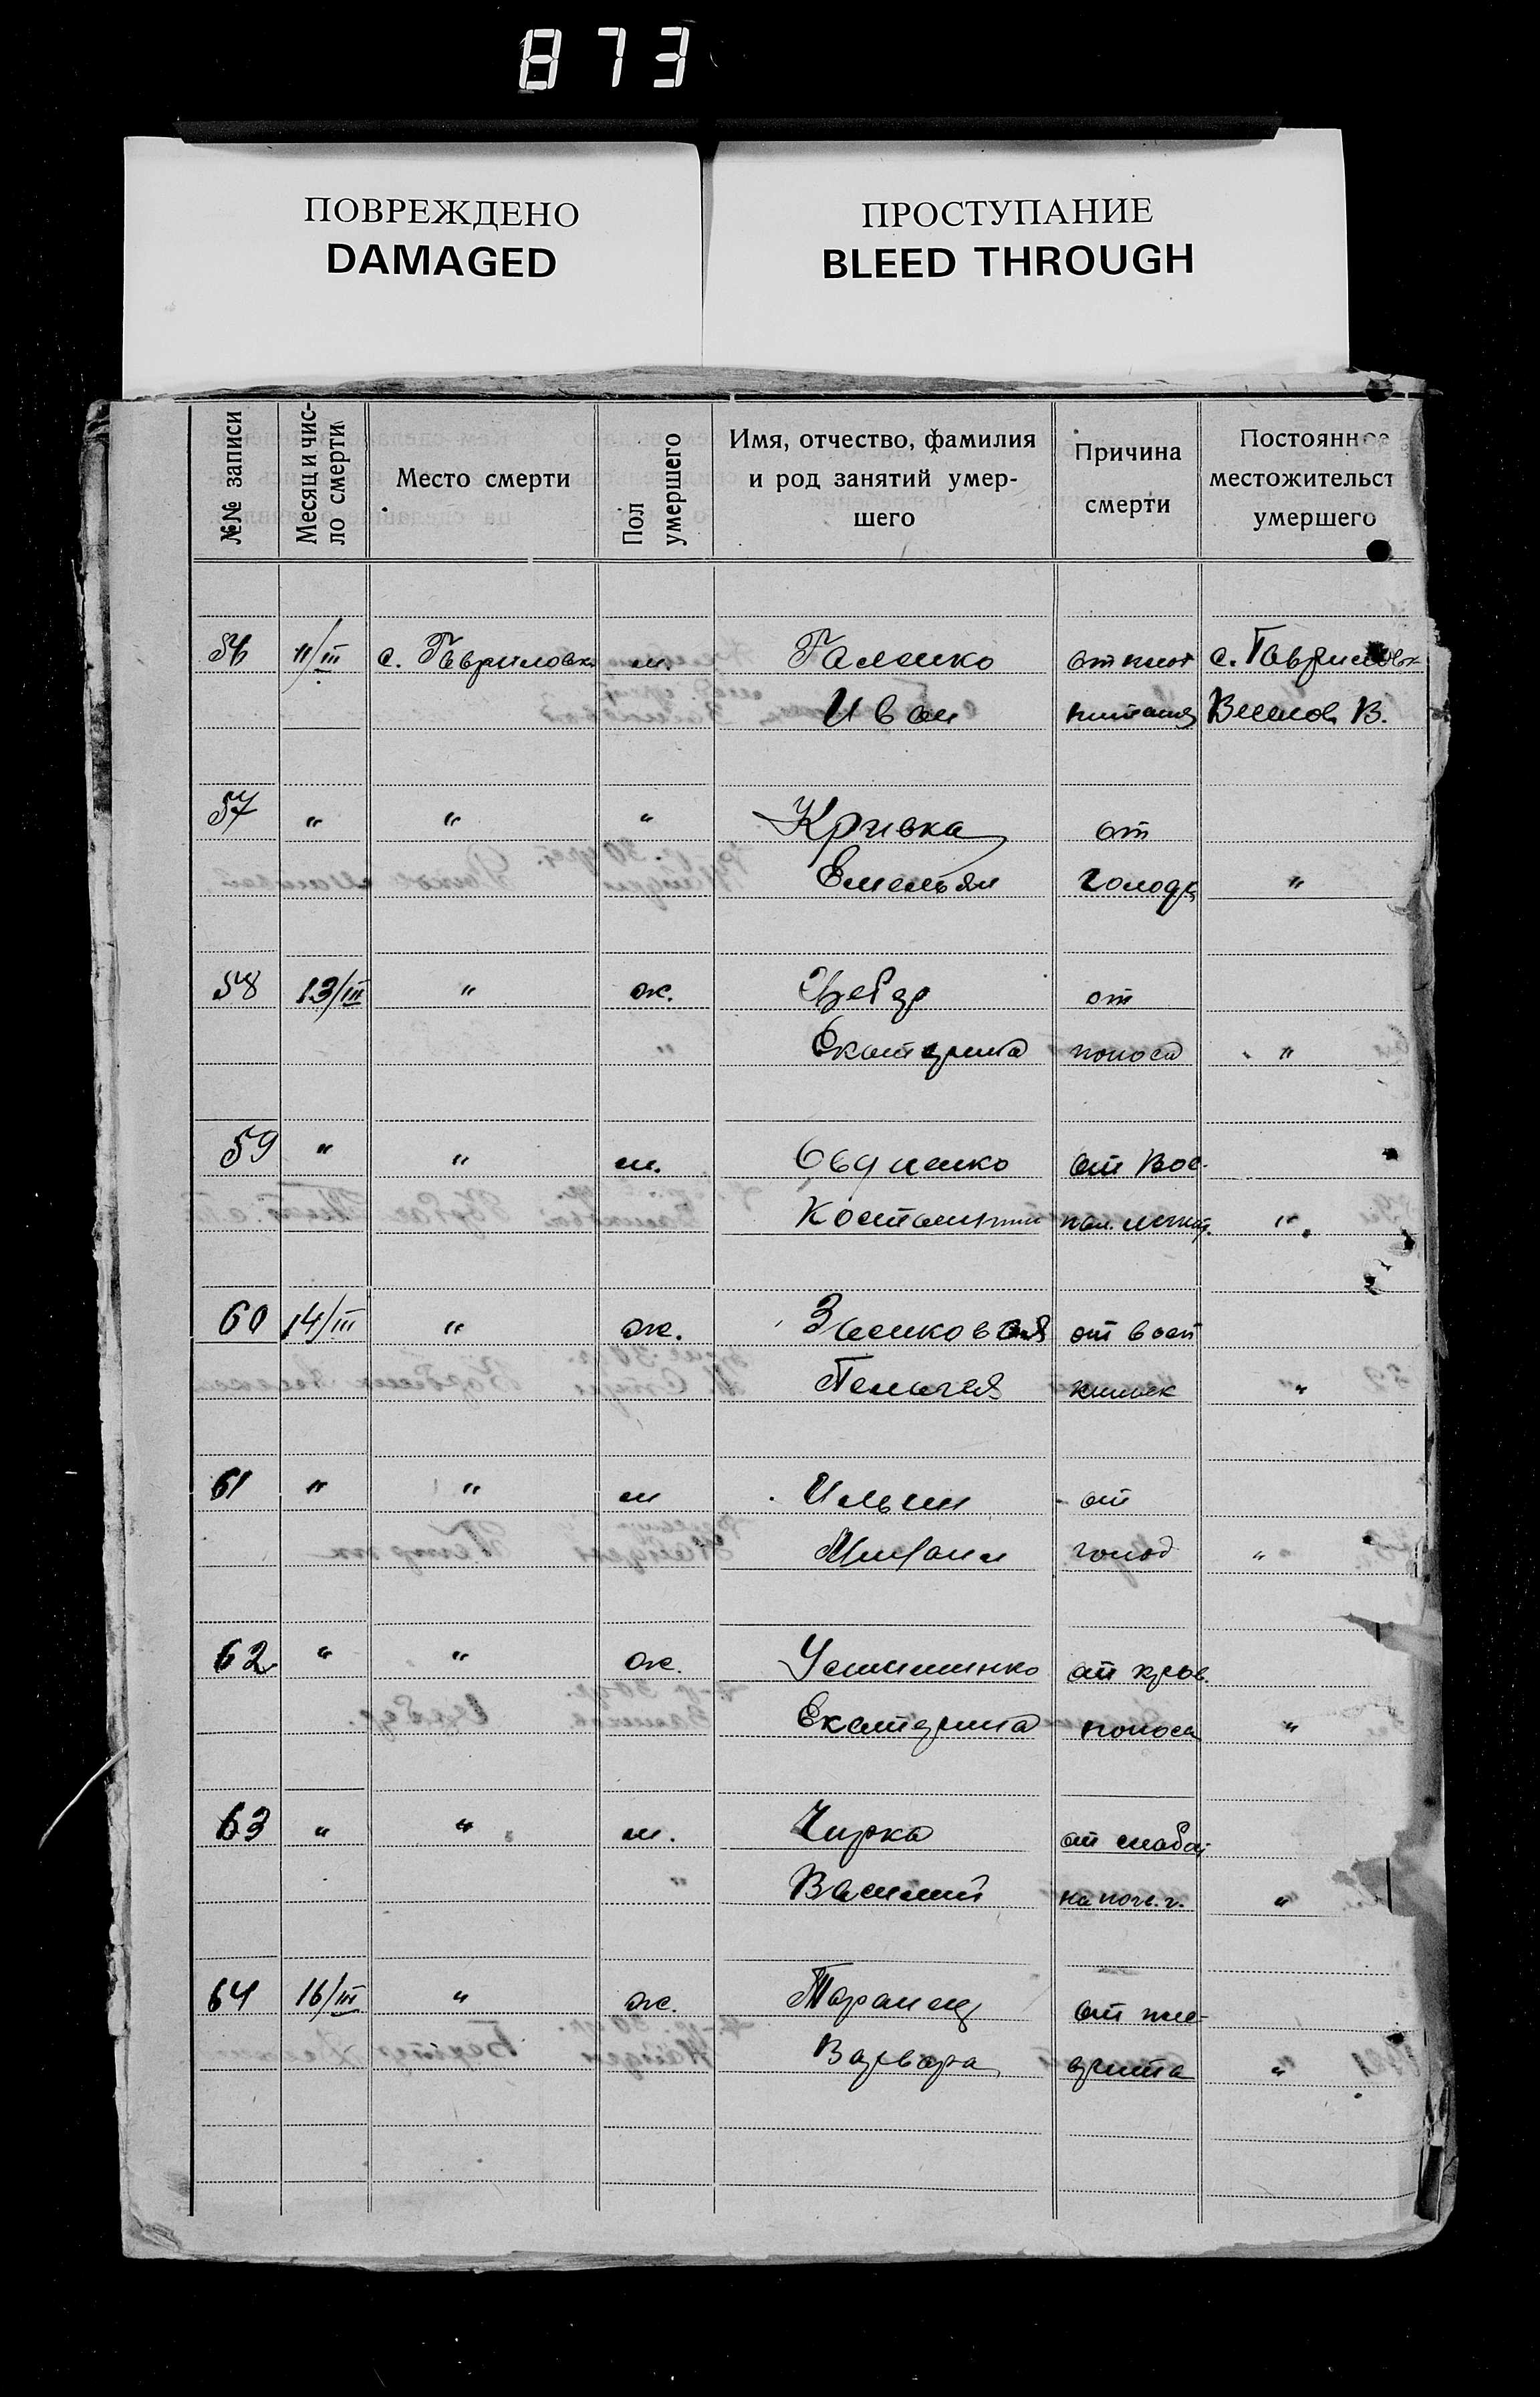 873
ПОВРЕЖДЕНО
DAMAGED
ПРОСТУПАНИЕ
BLEED THROUGH
№№ записи
Месяц и чис-
ло смерти
Место смерти
Пол
умершего
Имя, отчество, фамилия
и род занятий умер-
шего
Причина
смерти
Постоянное
местожительст
умершего
56 11/III с. Гавриловка м. Галенко от с. Гавриловк
Иван питания В.
57 " " " Кривка от
Емельян голода "
58 13/III " ж. от
" Екатерина поноса "
59 " " м. Овдиенко от вос-
Костантин пал. легких. "
60 14/III " ж. от восп
Пелагея кишек "
61 " " м Ильин от
голод "
62 " " ж. Устименко от кров.
Екатерина поноса "
63 " " м. Чирка от слабой
" Василий на почв. г. "
64 16/III " ж. Таранец от
Варвара "